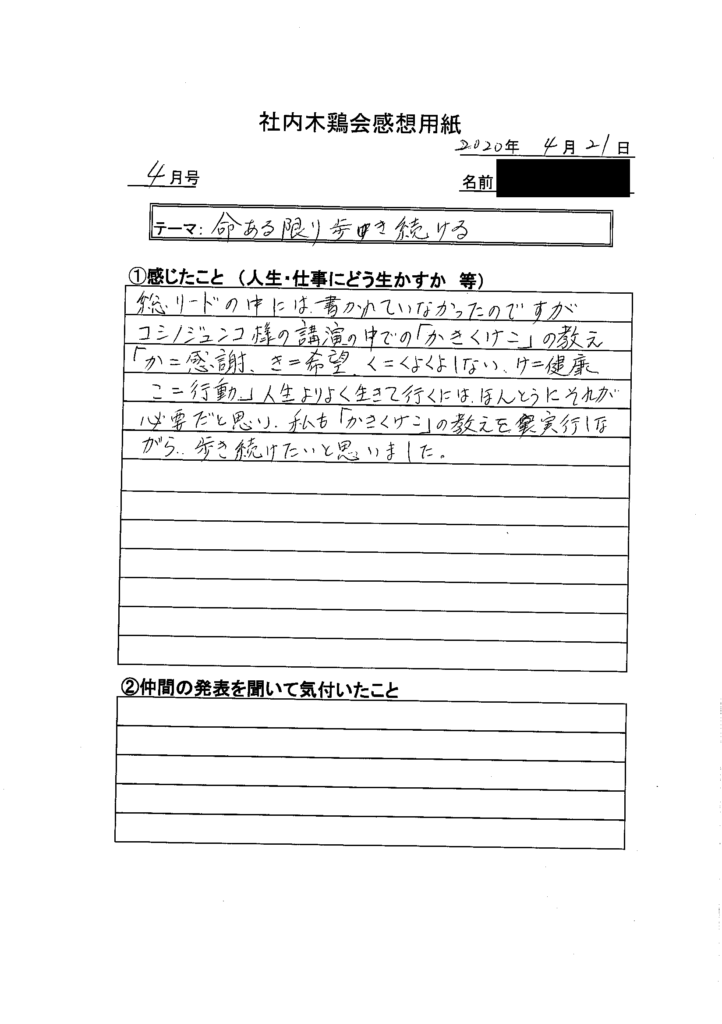 社内木鶏会感想用紙
2020年 4月21日
4月号
名前
テーマ: 命ある限り歩き続ける
①感じたこと(人生・仕事にどう生かすか 等)
総リードの中には、書かれていなかったのですが
コシノジュンコ様の講演の中での「かきくけこ」の教え
「か=感謝、き=希望、く=くよくよしない、け=健康
こ=行動」人生よりよく生きて行くには、ほんとうにそれが
必要だと思い、私も「かきくけこ」の教えを実行しな
がら、歩き続けたいと思いました。
②仲間の発表を聞いて気付いたこと